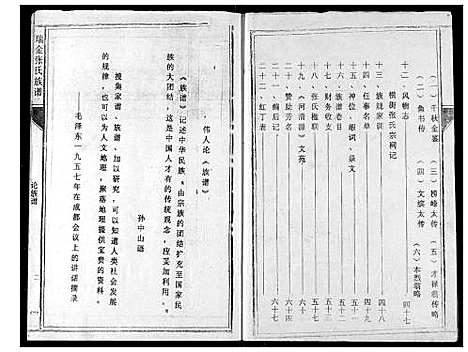 (一)千秋金鉴 (三)搒峰太传 (五)才禄翁传略
(二)鱼书传 (四)文缤太传 (六)本烈翁略
十二、风物志 四十七
横街张氏宗祠记
十三、族规家训 四十八
十四、任事名单 四十九
十五、神位、眼词、祭文 五十一
十六、族谱卷目 五十三
十七、财务收支 五十五
十八、张氏楹联 五十七
十九、《河清源》文苑 五十九
二十、赞助芳名 六十三
二十一、编后记 六十六
二十二、红丁表 六十七
伟人论《族谱》
《族谱》记述中华民族。由宗族的团结扩充至国家民
族的大团结，这是中国人才有的传统观念，应妥加利用。
孙中山语
搜集家谱、族谱，加以研究，可以知道人类社会发展
的规律，也可以为人文地理，聚落地理提供宝贵的资料。
——毛泽东一九五七年在成都会议上的讲话摘录
瑞金张氏族谱
论族谱
二